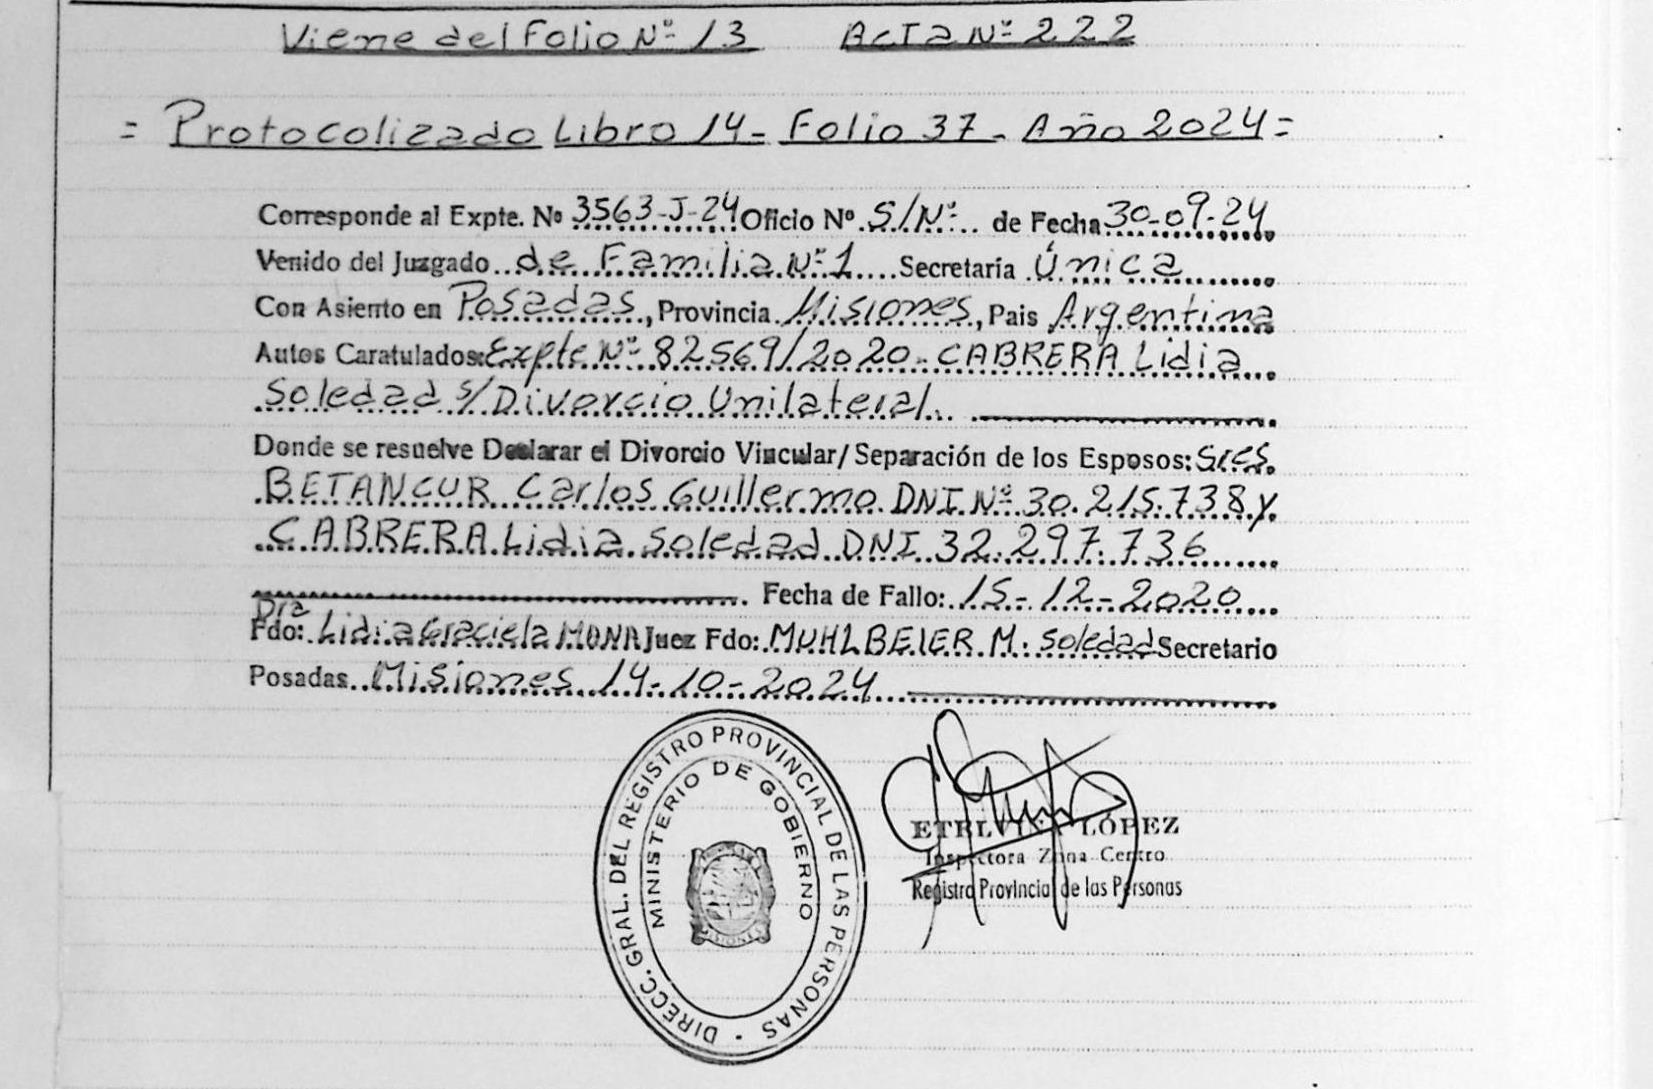 Viene del Folio Nº 13 Acta Nº 222
= Protocolizado Libro 14 - Folio 37 - Año 2024 =
Corresponde al Expte. Nº 3563-J-24 Oficio Nº S/Nº. de Fecha 30-09-24
Venido del Juzgado de Familia Nº 1 Secretaría Única
Con Asiento en Posadas, Provincia Misiones, Pais Argentina
Autos Caratulados: Expte Nº 82569/2020 - CABRERA Lidia
Soledad s/Divorcio Unilateral.
Donde se resuelve Declarar el Divorcio Vincular/Separación de los Esposos: Sres.
BETANCUR Carlos Guillermo DNI Nº 30.215.738 y
CABRERA Lidia Soledad DNI 32.297.736
Fecha de Fallo: 15-12-2020
Dra
Fdo: Lidia Graciela MONA Juez Fdo: MUHLBEIER M. Soledad Secretario
Posadas Misiones 14-10-2024
DIRECC. GRAL. DEL REGISTRO PROVINCIAL DE LAS PERSONAS -
MINISTERIO DE GOBIERNO
MISIONES
ETELVINA LÓPEZ
Inspectora Zona Centro
Registro Provincial de las Personas